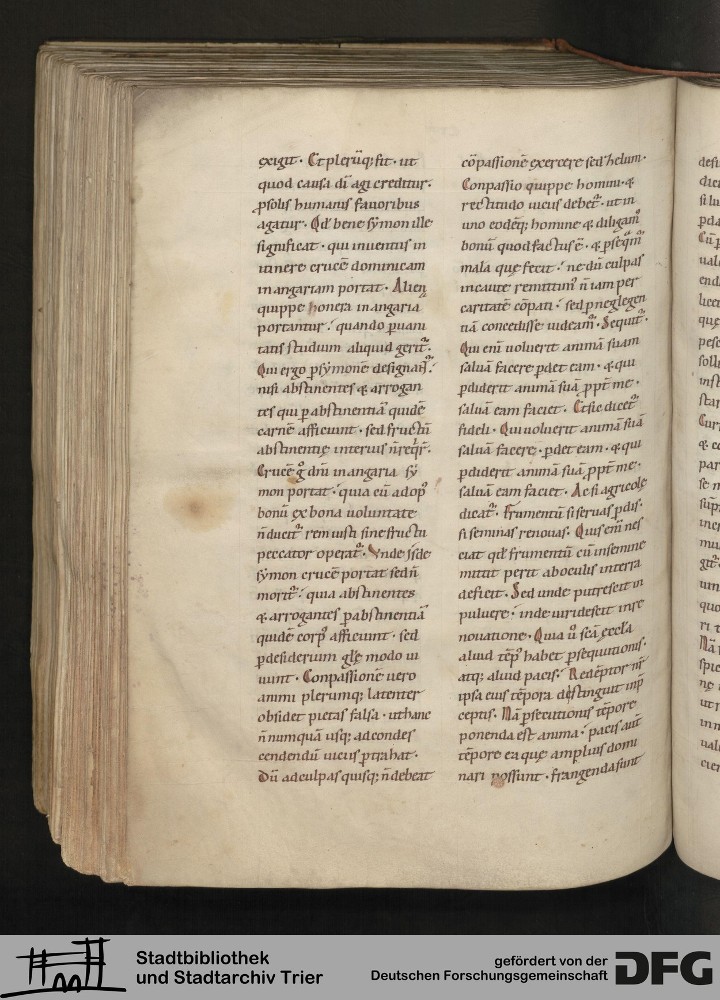 exigit · Et plerūq; fit · ut
quod causa dī agi creditur ·
ꝓ solis humanis fauoribus
agatur · Qd̄ bene symon ille
significat · qui inuentus in
itinere crucē dominicam
in angariam portat · Alien
quippe honera in angaria
portantur · quando ꝑ uani
tatis studium aliquid geritᷣ ·
Qui ergo ꝑ symonē designatᷣ ·
nisi abstinentes & arrogan
tes qui ꝑ abstinentiā quidē
carnē afficiunt · sed fructū
abstinentię interius n̄ reqrᷣ ·
Crucē g̊ dn̄i in angaria sy
mon portat · quia cū ad opꝰ
bonū ex bona uoluntate
n̄ ducitᷣ rem iusti sine fructu
peccator operatᷣ · Vnde isdē
symon crucē portat sed n̄
moritᷣ · quia abstinentes
& arrogantes ꝑ abstinentiā
quidē corpꝰ afficiunt · sed
ꝑ desiderium glę modo ui
uunt · Conpassionē uero
animi plerumq; latenter
obsidet pietas falsa · ut hanc
n̄ numquā usq; ad condes
cendendū uiciis ꝑtrahat ·
Dū ad culpas quisq; n̄ debeat
cōpassionē exercere sed helum ·
Conpassio quippe homini · &
rectitudo uiciis debetᷣ · ut in
uno eodēq; homine & diligamꝰ
bonū quod factus ē · & ꝑseqmꝰ
mala que fecit · ne dū culpas
incaute remittimꝰ n̄ iam per
caritatē cōpati · sed ꝑ neglegen
tiā concedisse uideamᷣ · Sequitᷣ ·
Qui eni uoluerit animā suam
saluā facere ꝑdet eam · & qui
ꝑdiderit animā suā ꝓpt me ·
saluā eam faciet · Et sic dicetᷣ
fideli · Qui uoluerit animā suā
saluā facere · ꝑdet eam · & qui
ꝑdiderit animā suā ꝓpt me ·
saluā eam faciet · Ac si agricole
dicatᷣ · Frumentū si seruas ꝑdis ·
si seminas renouas · Quis eni nes
ciat qd̄ frumentū cū in semine
mittit perit ab oculis in terra
deficit · Sed unde putrescit in
puluere · inde uiridescit in re
nouatione · Quia ū scā ęccla
aliud tēpꝰ habet ꝑsequutionis ·
atq; aliud pacis · Redēptor nr̄
ipsa eius tēpora distinguit in p̄
ceptis · Nā ꝑsecutionis tēpore
ponenda est anima · pacis aut̄
tēpore ea quę amplius domi
nari possunt · frangenda sunt
Stadtbibliothek
und Stadtarchiv Trier
gefördert von der
Deutschen Forschungsgemeinschaft
DFG